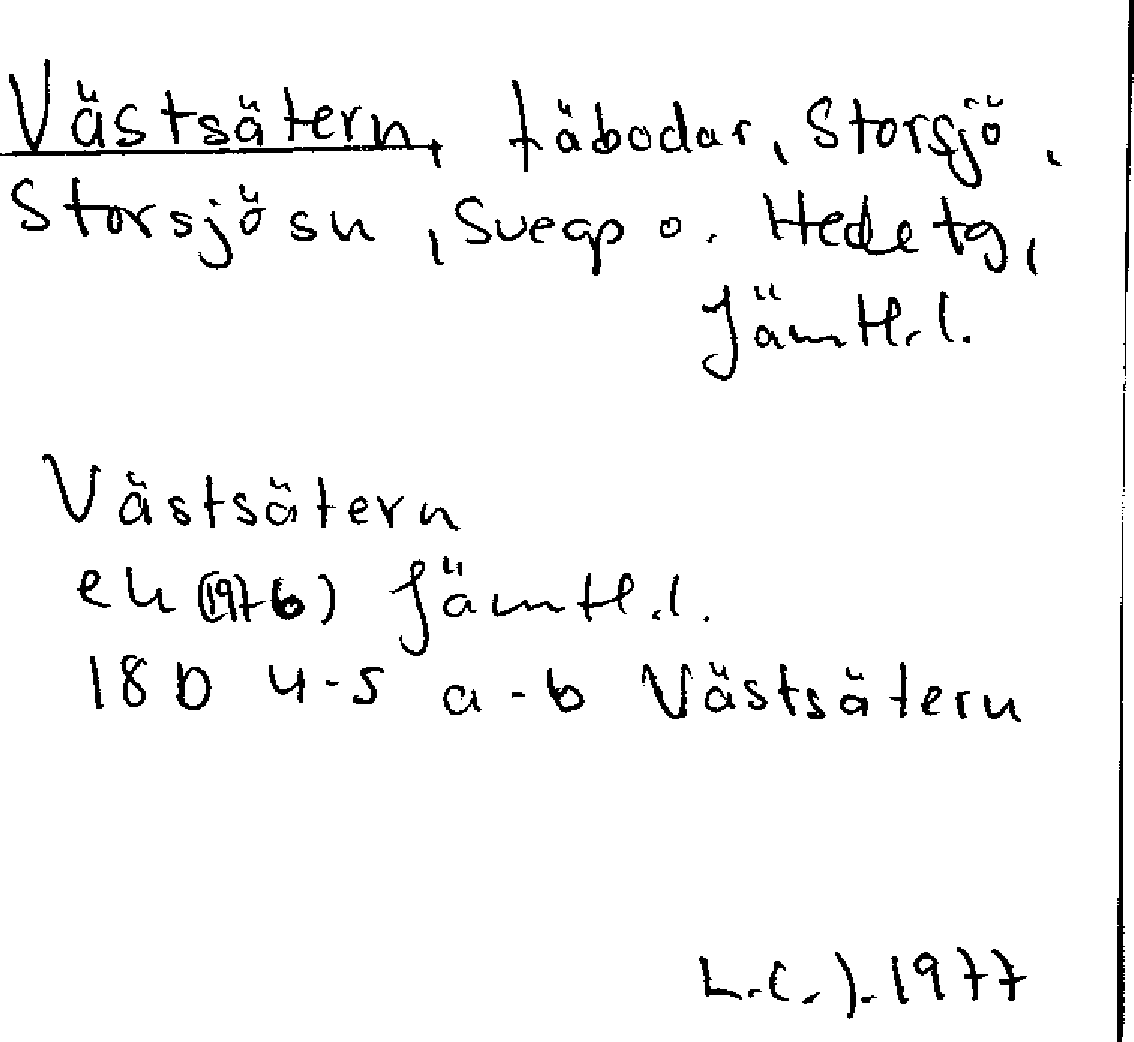 Västsätern, fäbodar, Storsjö,
Storsjö sn, Svegs o. Hede tg,
Jämtl.l.
Västsätern
ek (1976) Jämtl.l.
18D 4-5 a-b Västsätern
L.C.J. 1977